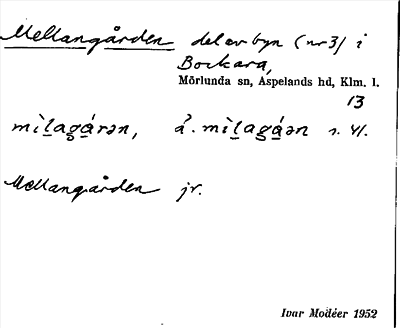 Mellangården del av byn (nr 3) i
Bockara,
Mörlunda sn, Aspelands hd, Klm. l.
13
mìl̠agá̠rən, å̉. mìl̠agá̠ən s. 41.
Mellangården jr.
Ivar Modéer 1952